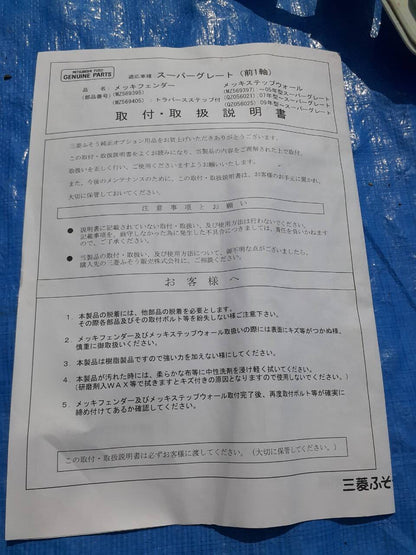 MITSUBISHI FUSO
GENUINE PARTS
適応車種 スーパーグレート(前1軸)
品名 メッキフェンダー メッキステップウォール
(部品番号)(MZ569395) (MZ569397) ～05年型～スーパーグレート
(MZ569405):トラバースステップ付 (QZ056021) 07年型～スーパーグレート
(QZ056025) 09年型～スーパーグレート
取付・取扱説明書
三菱ふそう純正オプション用品をお買上げいただきありがとうございます。
この取付・取扱説明書をよくお読みになり、当製品の内容をご理解された上で取付、
取扱いを正しく行い、ご使用くださいますようお願いいたします。
また、今後のメンテナンスのために、この取付・取扱説明書は、お客様のお手元に置かれ、
大切に保管しておいてください。
注意事項とお願い
● 説明書に記載されていない取付・取扱い、及び使用方法は行わないでください。
記載事項を、厳守しなかった為に発生した不具合につきましては、責任を負いかねます
ので、ご了承ください。
● 当製品の取付・取扱い、及び使用方法について、御不明な点がございましたら、
購入先の三菱ふそう販売株式会社に、ご相談ください。
お客様へ
1. 本製品の脱着には、他部品の脱着を必要とします。
その際各部品及びその取付ボルト等を紛失しない様ご注意下さい。
2. メッキフェンダー及びメッキステップウォール取扱いの際には表面にキズ等がつかぬ様、
慎重に御取扱いください。
3. 本製品は樹脂製品ですので強い力を加えない様にしてください。
4. 本製品が汚れた時には、柔らかな布等に中性洗剤を浸け軽く拭いてください。
(研磨剤入WAX等で拭きますとキズ付きの原因となりますので使用しないでください。)
5. メッキフェンダー及びメッキステップウォール取付完了後、再度取付ボルト等が確実に
締め付けてあるか確認してください。
この取付・取扱説明書は必ずお客様に渡してください。(大切に保管してください。)
三菱ふそ